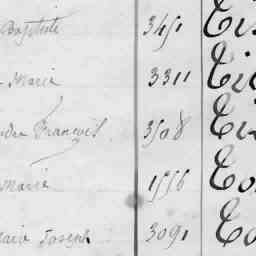 Baptiste 3451 Tis
Marie 3311 Ti
François 3508 Ti
Marie 1556 To
Marie Joseph 3091 To